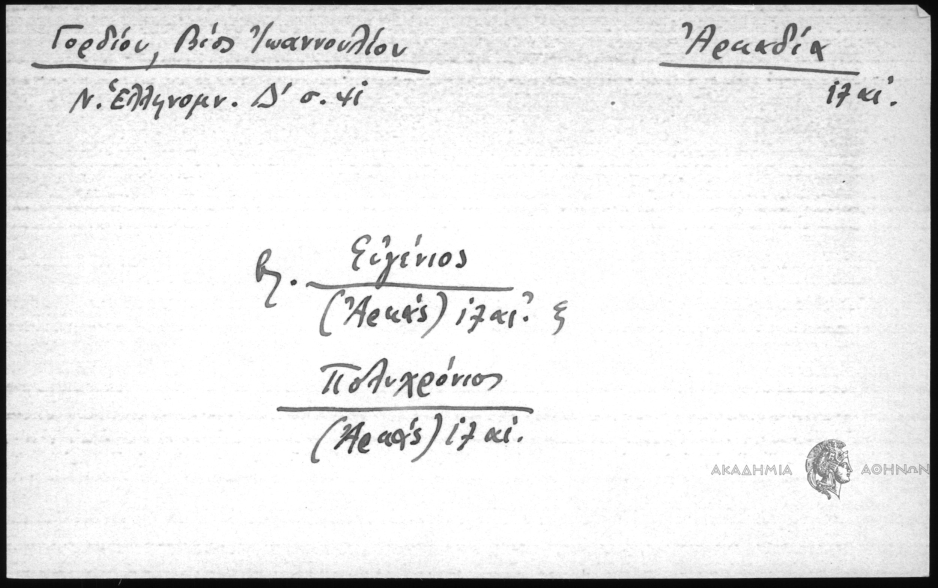 Γορδίου, Βίος Ἰωαννουλίου
Ἀρκαδία
Ν. Ἑλληνομν. Δ' σ.
ιζ αἰ.
βλ. Εὐγένιος
(Ἀρκάς) ιζ αἰ.
Πολυχρόνιος
(Ἀρκάς) ιζ αἰ.
ΑΚΑΔΗΜΙΑ ΑΘΗΝΩΝ